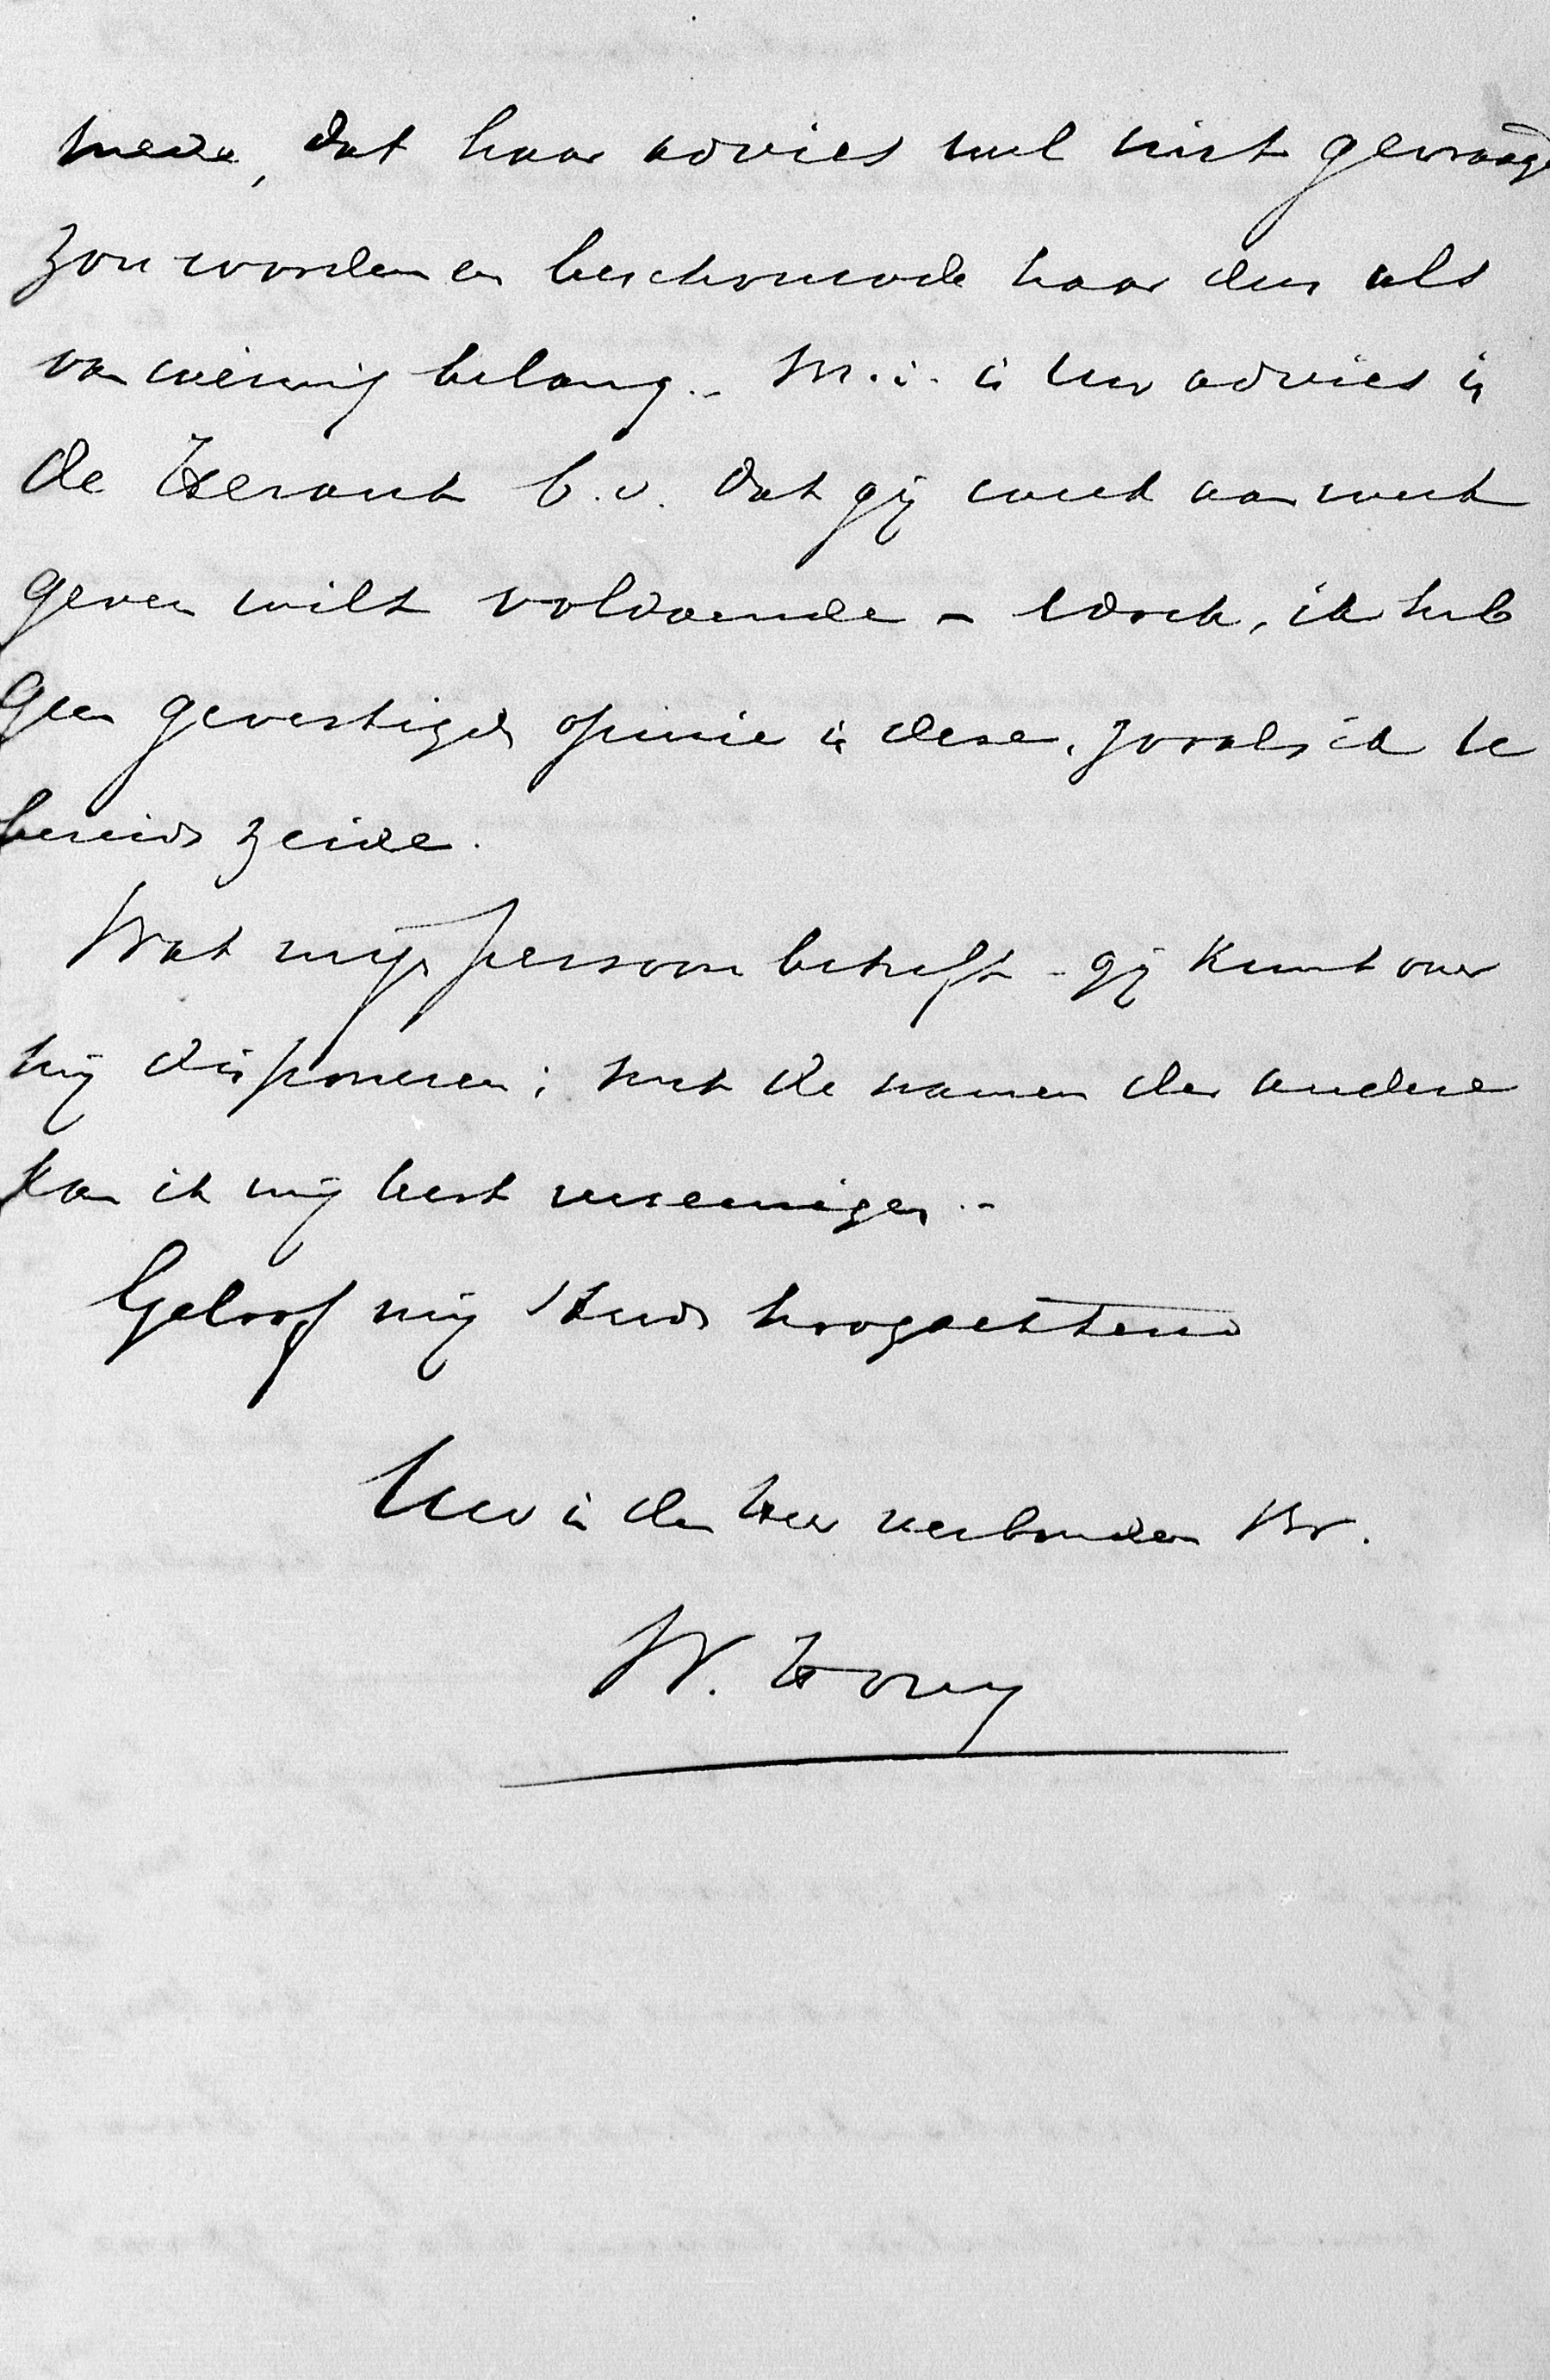 mede, dat haar advies wel niet gevraagd
zou worden en beschouwde haar dus als
van weinig belang.- M.i. is Uw advies in
de Heraut b.v. dat gij week aan week
geven wilt voldoende - edoch, ik heb
geen gevestigde opinie in deze, zooals ik te
bereids zeide.
Wat mijn persoon betreft - gij kunt over
mij disponeren; met de namen der andere
kan ik mij best vereenigen.-
Geloof mij steeds hoogachtend
Uw in den Heer verbonden Br.
W. Hovy